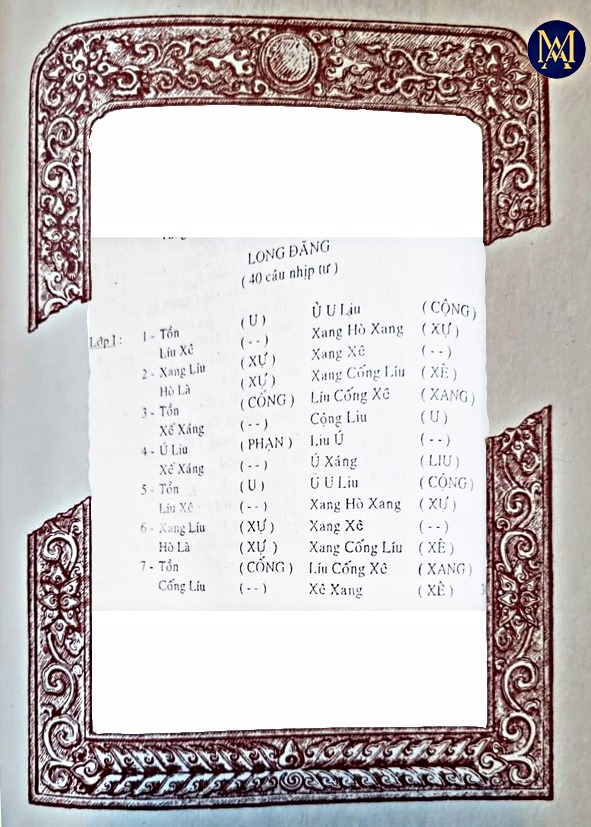 LONG ĐĂNG
( 40 câu nhịp tư )
Lớp I : 1 - Tồn ( U ) Ủ U Liu ( CỘNG )
Líu Xê ( - - ) Xang Hò Xang ( XỰ )
2 - Xang Líu ( XỰ ) Xang Xê ( - - )
Hò Là ( XỰ ) Xang Cống Líu ( XÊ )
3 - Tồn ( CỐNG ) Líu Cống Xê ( XANG )
Xế Xáng ( - - ) Cộng Liu ( U )
4 - Ú Liu ( PHẠN ) Liu Ú ( - - )
Xế Xáng ( - - ) Ú Xáng ( LIU )
5 - Tồn ( U ) Ủ U Liu ( CỘNG )
Líu Xê ( - - ) Xang Hò Xang ( XỰ )
6 - Xang Líu ( XỰ ) Xang Xê ( - - )
Hò Là ( XỰ ) Xang Cống Líu ( XÊ )
7 - Tồn ( CỐNG ) Líu Cống Xê ( XANG )
Cống Líu ( - - ) Xê Xang ( XÊ )